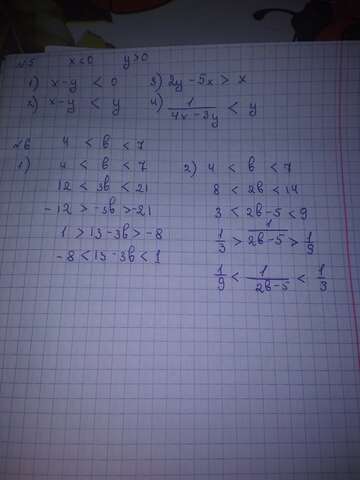 №5 x<0 y>0
1) x-y < 0 3) 2y-5x > x
2) x-y < y 4) 1/(4x-3y) < y
№6 4 < b < 7
1) 4 < b < 7 2) 4 < b < 7
12 < 3b < 21 8 < 2b < 14
-12 > -3b > -21 3 < 2b-5 < 9
1 > 13-3b > -8 1/3 > 1/(2b-5) > 1/9
-8 < 13-3b < 1 1/9 < 1/(2b-5) < 1/3